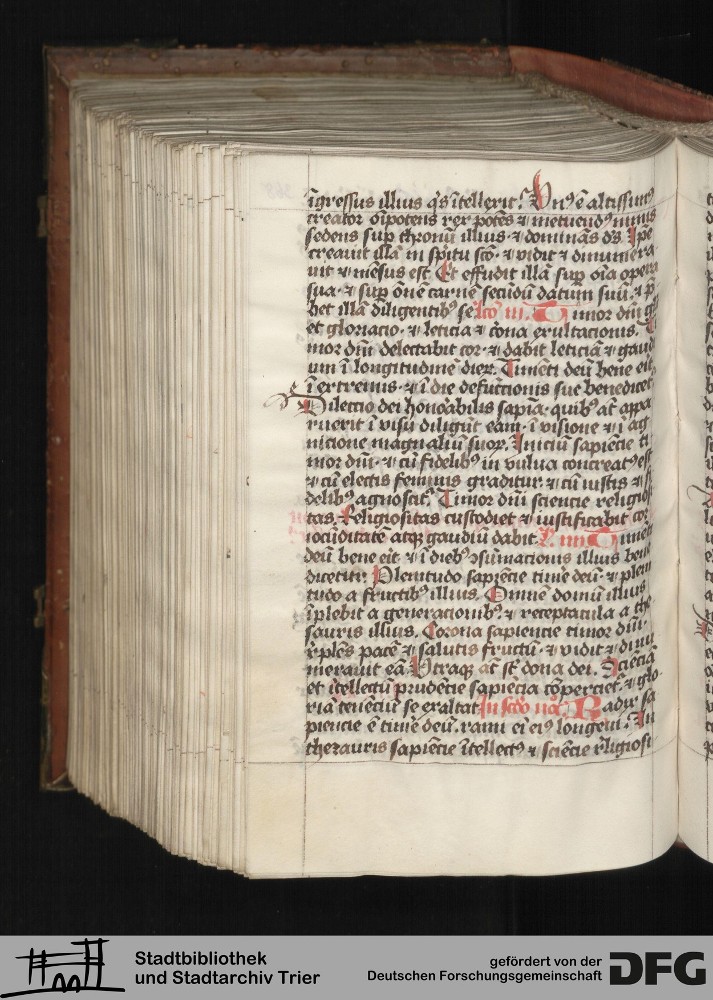 īgressus illius qͥs ītellexit? Vnꝰ ē altissimꝰ
creator oīpotens rex potēs ⁊ metuendꝰ nimis
sedens sup thronū illius ⁊ dominās dꝰs Ipe
creauit illā in spūtu scō ⁊ vidit ⁊ dinumera
uit ⁊ mēsus est Et effudit illā sup oīa opera
sua ⁊ sup ōnē carnē secūdū datum suū ⁊ p̄
bet illā diligentibꝰ se lco iii. Timor dn̄i gl
et gloriacio ⁊ leticia ⁊ cōna exultacionis. T
mor dn̄i delectabit cor ⁊ dabit leticiā ⁊ gaud
um ī longitudinē dieꝝ. Timēti deū bene eit
ī extremis ⁊ ī die defūctionis sue benedicet
Dilectio dei honoabilis sapīa quibꝰ at̄ appa
ruerit ī visu diligūt eam ī visione ⁊ ī ag
nicione magnaliū suoꝝ. Iniciū sapiēcie ti
mor dn̄i ⁊ cū fidelibꝰ in vulua concreatꝰ est
⁊ cū electis feminis graditur ⁊ cū iustis ⁊ fi
delibꝰ agnoscit. Timor dn̄i sciencie religiosi
tas. Religiositas custodiet ⁊ iustificabit cor
iocūditatē atqꝫ gaudiū dabit. L iiii Timēti
deū bene eit ⁊ ī diebꝰ ↄsūmacionis illius bene
dicetur Plenitudo sapiēcie timē deū ⁊ pleni
tudo a fructibꝰ illius. Omnē domū illius
īplebit a generacionibꝰ ⁊ receptacula a the
sauris illius. Corona sapiencie timor dn̄i
r̄plēs pacē ⁊ salutis fructū ⁊ vidit ⁊ dinu
merauit eā Vtraqꝫ at̄ sūt dona dei. Sciēciā
et ītellectū prudēcie sapiēcia cōperciet ⁊ glo
riā tenēciū se exaltat In scdo no Radix sa
piencie ē timē deū. rami ei eiꝰ longeui. In
thezauris sapiēcie ītellectꝰ ⁊ sciēcie r̄ligiosi
Stadtbibliothek
und Stadtarchiv Trier
gefördert von der
Deutschen Forschungsgemeinschaft
DFG